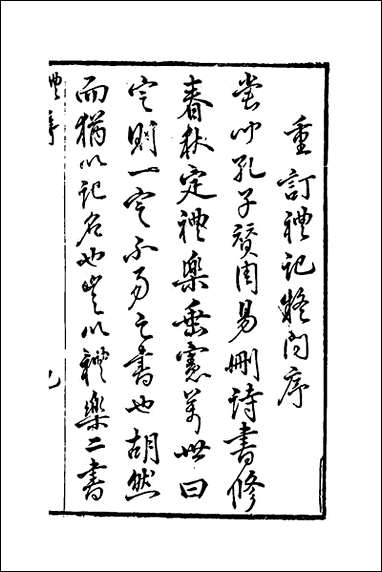 重訂禮記疑問序
嘗聞孔子贊周易刪詩書修
春秋定禮樂垂憲萬世曰
定則一定不易之書也胡然
而猶以記名也豈以禮樂二書
禮序